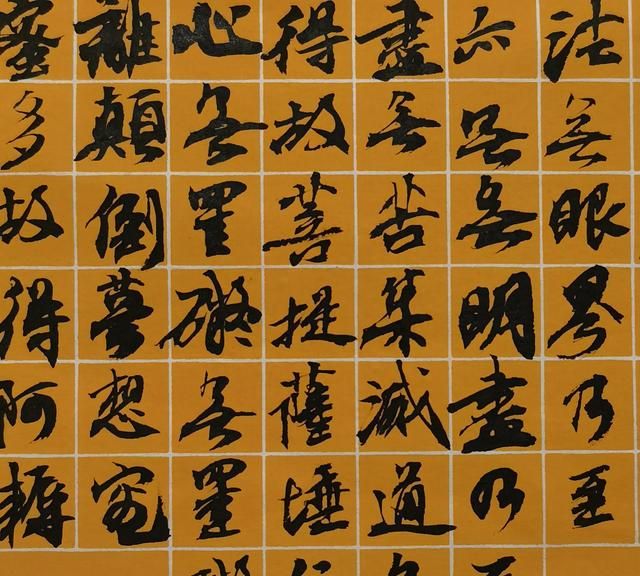 法無眼界乃至
亦無無明盡乃
盡無苦集滅道
得故菩提薩埵
心無罣礙無罣
離顛倒夢想究
蜜多故得阿耨